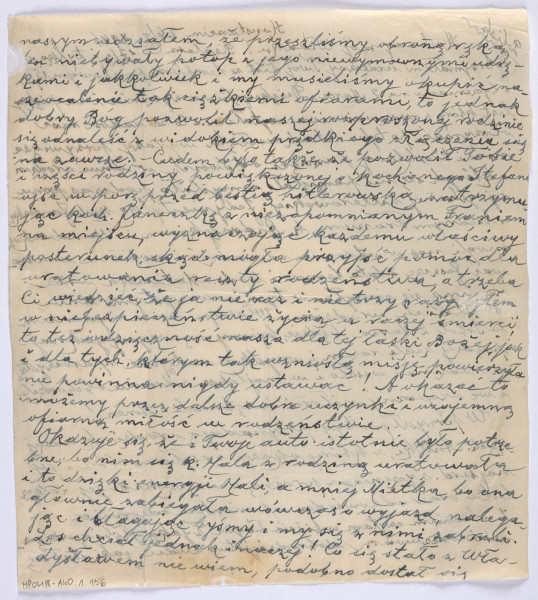 naszym udziałem, że przeszliśmy obronną ręką
ten niebywały potop z jego niewymownymi udrę-
kami i jakkolwiek i my musieliśmy okupić na-
sze ocalenie tak ciężkiemi ofiarami, to jednak
dobry Bóg pozwolił naszej rozproszonej rodzinie
się odnaleźć z widokiem prędkiego złączenia się
na zawsze. Cudem było także, że pozwolił Tobie
i części rodziny powiększonej o kochanego Stefana
ujść w porę przed bestią hitlerowską, zatrzymu-
jąc koch. Janeczkę z niezapomnianym Franiem
na miejscu, wyznaczając każdemu właściwy
posterunek skąd mogła przyjść pomoc dla
uratowania reszty rodzeństwa, a trzeba
Ci wiedzieć, że ja nie raz i nie trzy razy byłem
w niebezpieczeństwie życia a raczej śmierci,
to też wdzięczność nasza dla tej łaski Bożej jak
i dla tych, którym tak wzniosłą misję powierzyła
nie powinna nigdy ustawać! A okazać to
możemy przez dalsze dobre uczynki i wzajemną
ofiarną miłość w rodzeństwie.
Okazuje się, że i Twoje auto istotnie było potrze-
bne, bo nim się k. Hala z rodziną uratowała
i to dzięki energji Hali a mniej Mietka, bo ona
głównie zabiegała wówczas o wyjazd, nalega-
jąc i błagając byśmy i my się z nimi zabrali.
Los chciał jednak inaczej! Co się stało z Wła-
dysławem nie wiem, podobno dostał się
MPOLIN-A40.1.156